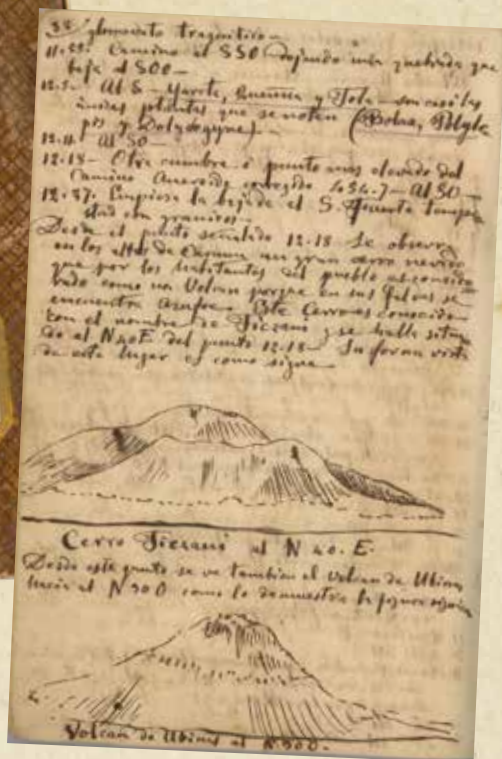 38 glomerato traquitico—
11.55. Camino al SSO dejando una quebrada que
baja al SOO—
12.5— Al S— Yareta, Queñua y Tola— son casi las
únicas plantas que se notan (Bolax, Polyle
pis y Dolydogyne)—
12.11 Al SO—
12.18— Otra cumbre o punto mas elevado del
Camino Aneroide corregido 454.7— Al SO—
12.37. Empieza la bajada al S. Fuerte tempes
tad con granizo—
Desde el punto señalado 12.18 se observa
en los altos de Carumas un gran cerro nevado
que por los habitantes del pueblo es conside
rado como un Volcan porque en sus faldas se
encuentra Azufre. Este Cerro es conocido
con el nombre de Ticsani y se halla situa
do al N40E del punto 12.18— Su forma vista
de este lugar es como sigue
Cerro Ticsani al N 40. E.
Desde este punto se ve tambien el Volcan de Ubinas
hacia el N30O como lo demuestra la figura
Volcan de Ubinas al N30O.